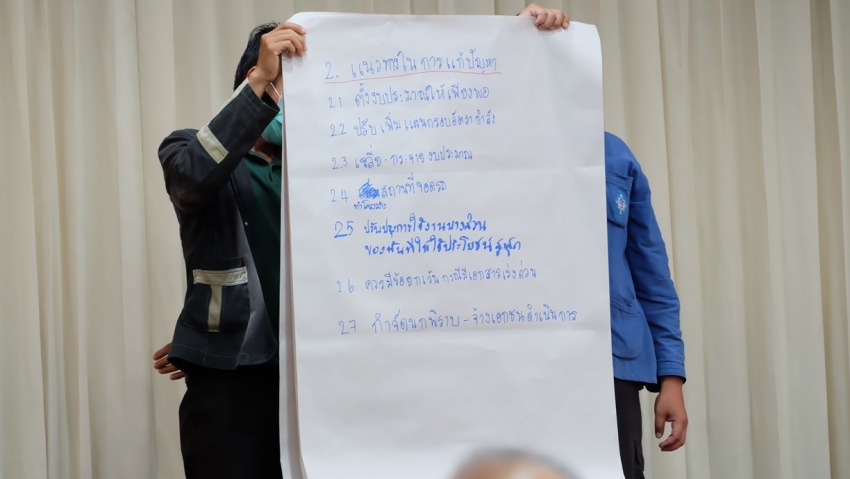 2. แนวทางในการแก้ปัญหา
2.1 ตั้งงบประมาณให้เพียงพอ
2.2 ปรับเพิ่มแผนกรอบอัตรากำลัง
2.3 เฉลี่ย - กระจายงบประมาณ
2.4 สถานที่จอดรถ
2.5 ปรับปรุงการใช้งานบางส่วน
ของพื้นที่ให้ใช้ประโยชน์สูงสุด
2.6 ควรมีข้อยกเว้นกรณีมีเอกสารเร่งด่วน
2.7 กำจัดนกพิราบ - จ้างเอกชนดำเนินการ